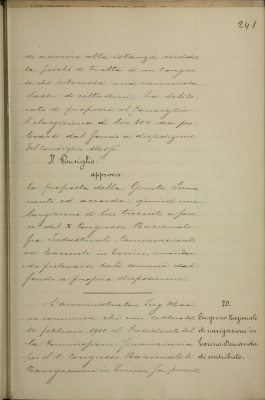 241
di aderire alla istanza suddet-
ta, perchè si tratta di un congres-
so che interessa una numerosa
classe di cittadini, ha delibe-
rato di proporre al Consiglio
l'elargizione di lire 300 da pre-
levarsi dal fondo a disposizione
del Consiglio stesso.
Il Consiglio
approva
la proposta della Giunta
ed accorda quindi una
elargizione di lire trecento a favo-
re del X Congresso Nazionale
fra Industriali, Commercianti
ed Esercenti in Torino, mandan-
do prelevarsi tale somma dal
fondo a propria disposizione.
L'amministratore
comunica che con lettera del
10 febbraio 1911 il Presidente del
la Commissione finanziaria
Congresso Nazionale di
Navigazione in Torino
20.
Congresso Nazionale
di navigazione in
Torino. Domanda
di contributo.